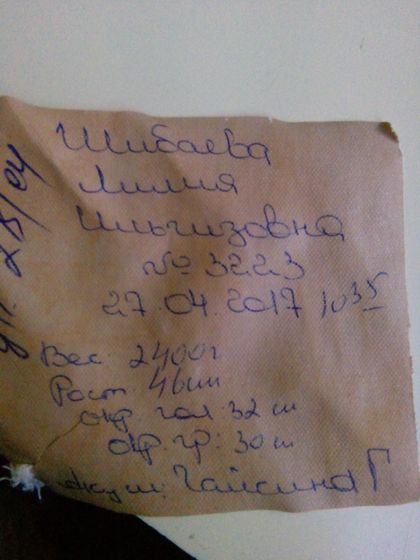 Шибаева
Лилия
Ильгизовна
№ 3223
27.04.2017 10 35
Вес 2400г
Рост 46см
окр. гол. 32 см
окр. гр.: 30 см
Акуш. Гайсина Г
28/04